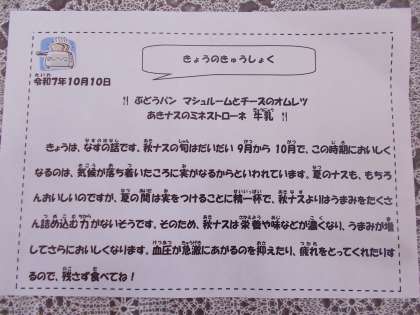 きょうのきゅうしょく
令和7年10月10日
!! ぶどうパン マッシュルームとチーズのオムレツ
あきナスのミネストローネ 牛乳 !!
きょうは、なすの話です。秋ナスの旬はだいたい 9月から 10月で、この時期においしく
なるのは、気候が落ち着いたころに実がなるからといわれています。夏のナスも、もちろ
んおいしいのですが、夏の間は実をつけることに精一杯で、秋ナスよりはうまみをたくさ
ん詰め込む力がないそうです。そのため、秋ナスは栄養や味などが濃くなり、うまみが増
してさらにおいしくなります。血圧が急激にあがるのを抑えたり、疲れをとってくれたりす
るので、残さず食べてね!